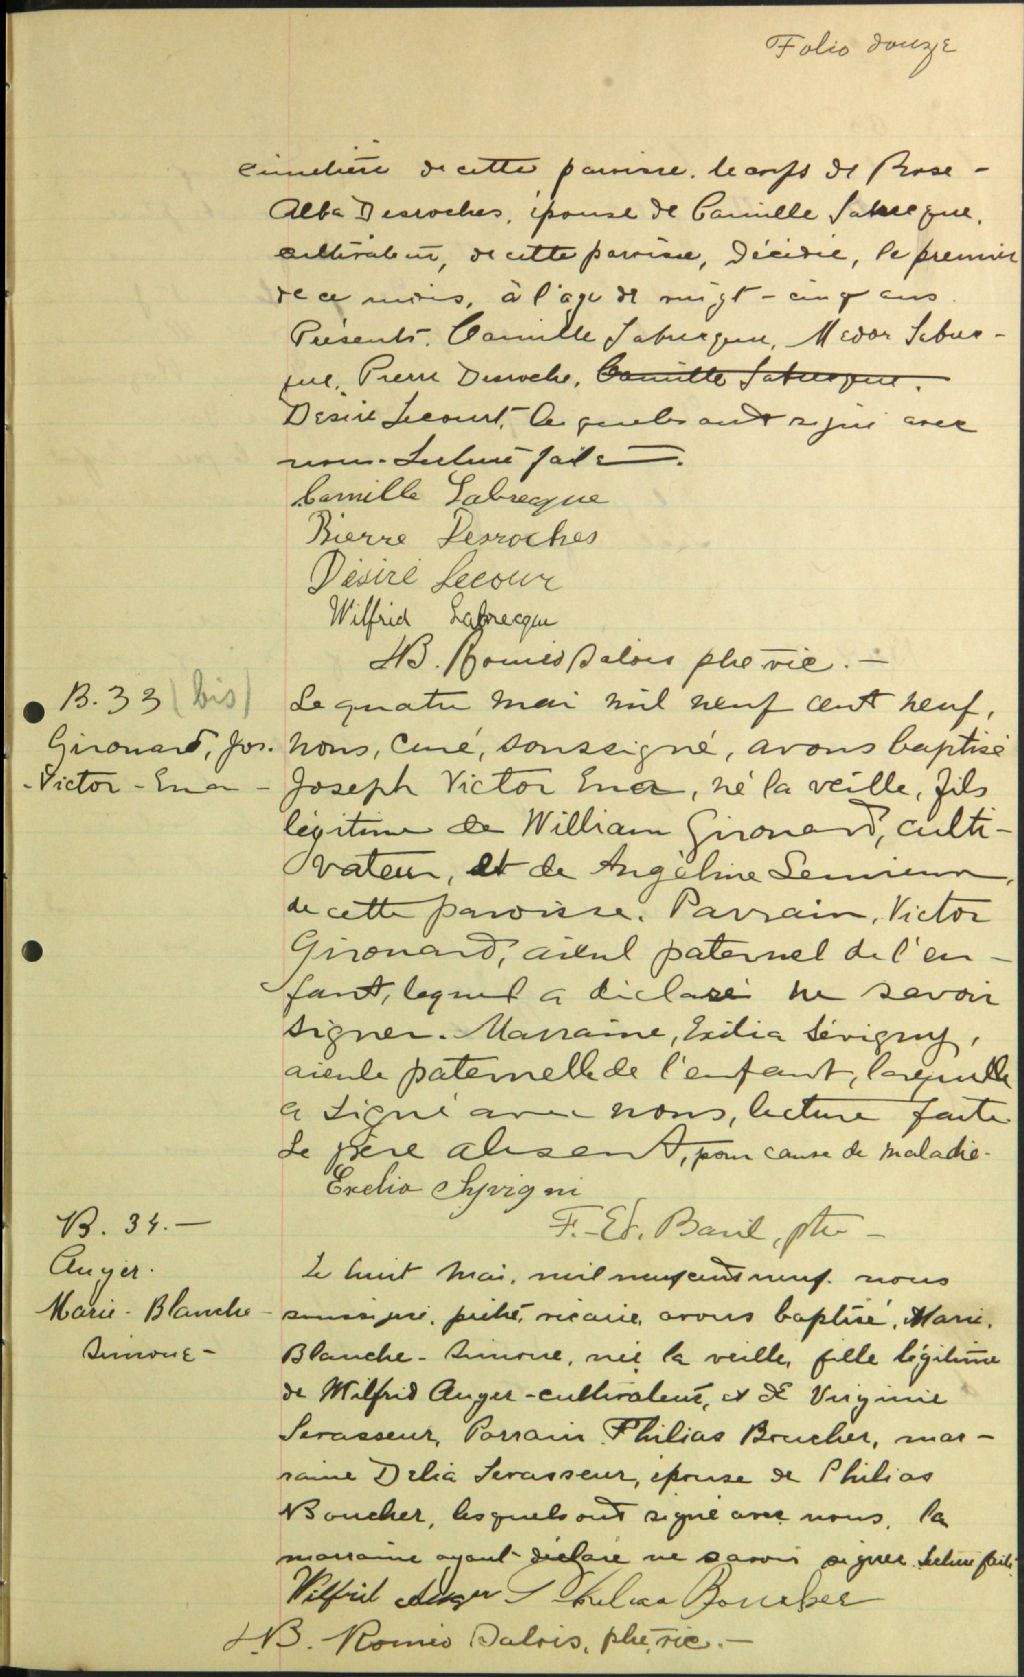 Folio douze
cimetière de cette paroisse, le corps de Rose-
Alba Desroches, épouse de Camille Labrecque,
cultivateur, de cette paroisse, décédée, le premier
de ce mois, à l'âge de vingt-cinq ans.
Présents: Camille Labrecque, Médor Labrec-
que, Pierre Desroche, Camille Labrecque.
Désiré Lecourt, lesquels ont signé avec
nous. Lecture faite.
Camille Labrecque
Pierre Desroches
Désiré Lecour
Wilfrid Labrecque
Roméo Dalois ptre vic.—
B. 33 (bis)
Girouard, Jos.
-Victor-Ena-
Le quatre mai mil neuf cent neuf,
nous, curé, soussigné, avons baptisé
Joseph Victor Ena, né la veille, fils
légitime de William Girouard, culti-
vateur, et de Angéline Lemieux,
de cette paroisse. Parrain, Victor
Girouard, aïeul paternel de l'en-
fant, lequel a déclaré ne savoir
signer. Marraine, Exilia Sévigny,
aïeule paternelle de l'enfant, laquelle
a signé avec nous, lecture faite.
Le père absent, pour cause de maladie.
Exelia Syvigni
F.-Ed. Baril, ptre—
B. 34.—
Auger.
Marie-Blanche-
Simone-
Le huit mai, mil neuf cent neuf. nous
soussigné, prêtre, vicaire, avons baptisé, Marie,
Blanche-Simone, née la veille, fille légitime
de Wilfrid Auger-cultivateur, et de Virginie
Levasseur, Parrain Philias Boucher, mar-
raine Délia Levasseur, épouse de Philias
Boucher, lesquels ont signé avec nous, la
marraine ayant déclaré ne savoir signer. Lecture faite
Wilfrid Auger Philias Boucher
Roméo Dalois, ptre, vic.—